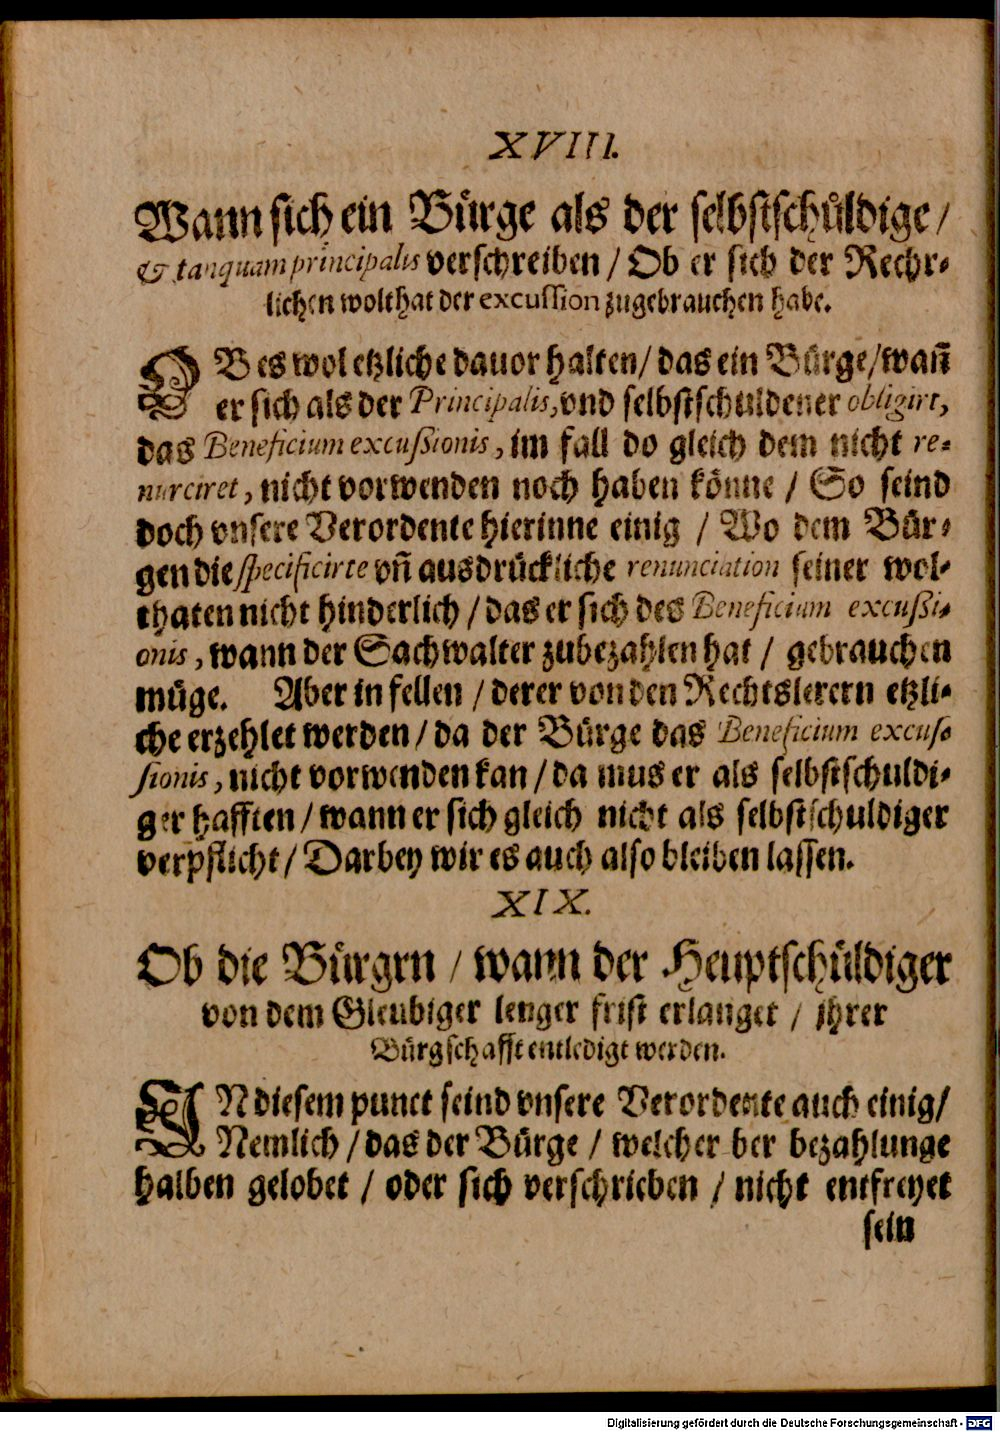 XVIII.
Wann sich ein Bürge als der selbstschüldige/
& tanquam principalis verschreiben / Ob er sich der Rechr-
lichen wolthat der excussion zugebrauchen habe.
OB es wol etzliche dauor halten/ das ein Bürge/wañ
er sich als der Principalis, vnd selbstschuldener obligirt,
das Beneficium excußionis, im fall do gleich dem nicht re-
nurciret, nicht vorwenden noch haben könne / So seind
doch vnsere Verordente hierinne einig / Wo dem Bür-
gen die specificirte vñ ausdrückliche renunciation seiner wol-
thaten nicht hinderlich / das er sich des Beneficium excußi-
onis, wann der Sachwalter zubezahlen hat / gebrauchen
müge. Aber in fellen / derer von den Rechtslerern etzli-
che erzehlet werden / da der Bürge das Beneficium excus-
sionis, nicht vorwenden kan / da mus er als selbstschuldi-
ger hafften / wann er sich gleich nicht als selbstschuldiger
verpflicht / Darbey wir es auch also bleiben lassen.
XIX.
Ob die Bürgen / wann der Heuptschüldiger
von dem Gleubiger lenger frist erlanget / jhrer
Bürgschafft entledigt werden.
IN diesem punct seind vnsere Verordente auch einig/
Nemlich / das der Bürge / welcher ber bezahlunge
halben gelobet / oder sich verschrieben / nicht entfreyet
sein
Digitalisierung gefördert durch die Deutsche Forschungsgemeinschaft - DFG